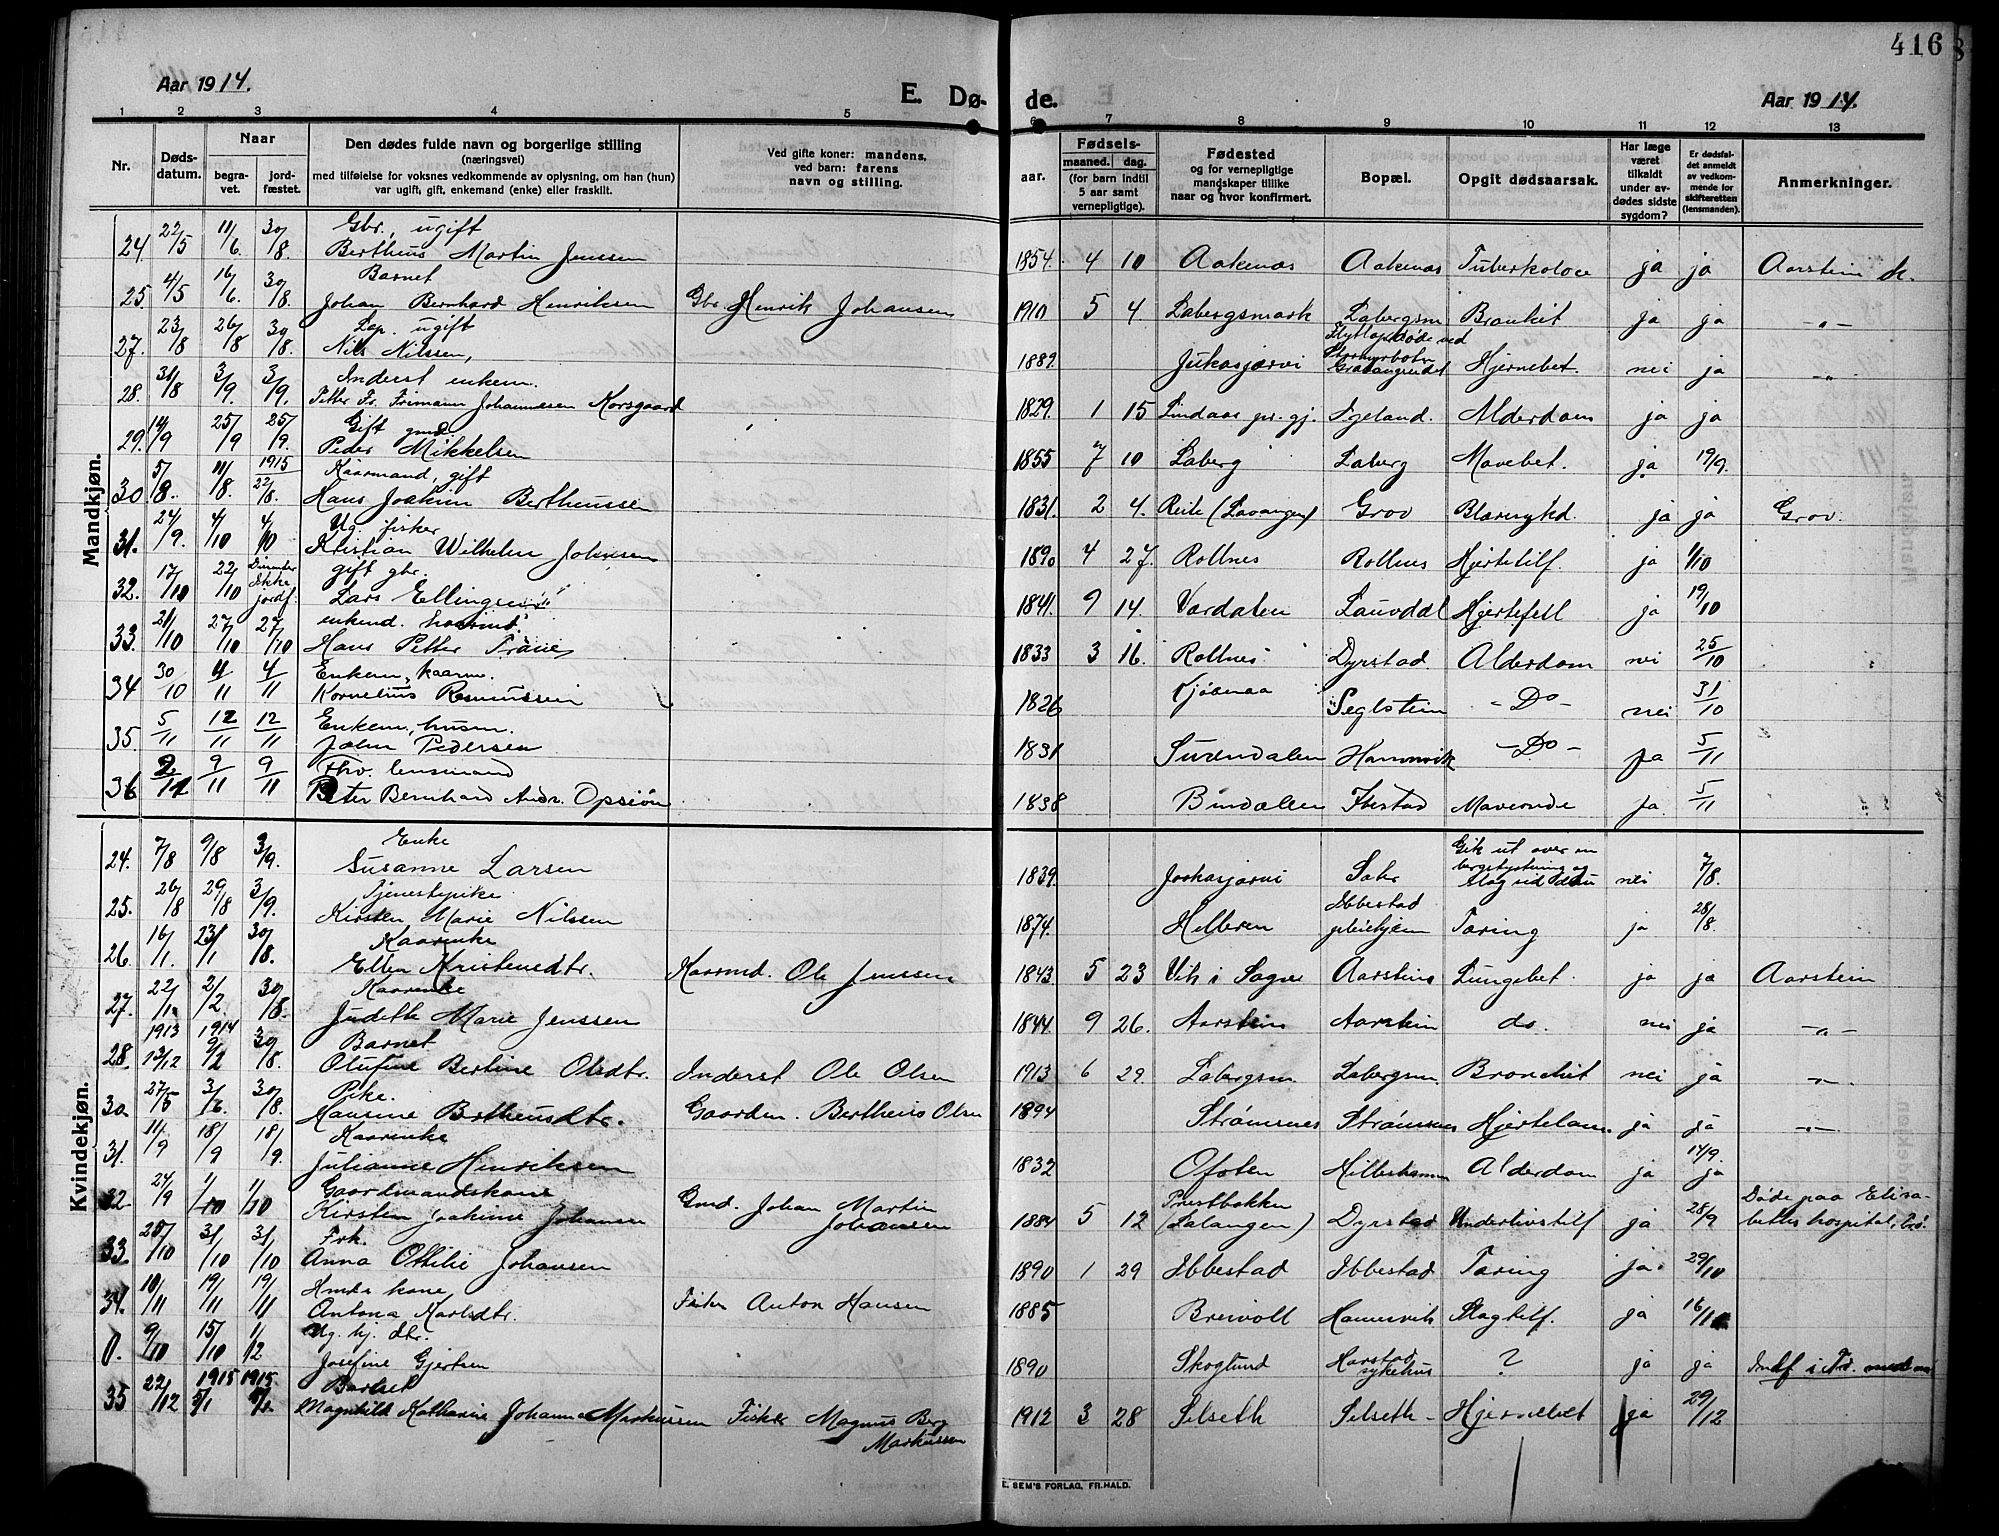 416
Aar 1914.
E. Dø-
de.
Aar 1914.
1 2 3 4 5 6 7 8 9 10 11 12 13
Nr.
Døds-
datum.
Naar
begra-
vet.
jord-
fæstet.
Den dødes fulde navn og borgerlige stilling
(næringsvei)
med tilføielse for voksnes vedkommende av oplysning, om han (hun)
var ugift, gift, enkemand (enke) eller fraskilt.
Ved gifte koner: mandens,
ved barn: farens
navn og stilling.
Fødsels-
aar.
maaned.
dag.
(for barn indtil
5 aar samt
vernepligtige).
Fødested
og for vernepligtige
mandskaper tillike
naar og hvor konfirmert.
Bopæl.
Opgit dødsaarsak.
Har læge
været
tilkaldt
under av-
dødes sidste
sygdom?
Er dødsfal-
det anmeldt
av vedkom-
mende for
skifteretten
(lensmanden).
Anmerkninger.
Mandkjøn.
Gbr., ugift
24. 22/5 11/6 30/8 Bertheus Martin Jenssen 1854. 4 10 Aakenas Aakenas Tuberkolose ja ja Aarstein k.
Barnet
25. 4/5 16/6. 30/8. Johan Bernhard Henriksen Gbr. Henrik Johansen 1910 5 4 Labergsmark Labergsm Bronkit ja ja -„-
Lap. ugift
27. 23/8 26/8 30/8. Nils Nilssen, 1889. Jukasjærvi Hjernebet. nei ja -„-
Inderst enkem.
28. 31/8 3/9. 3/9. Petter Fr. Frimann Johannesen Korsgaard 1829. 1 15 Lindaas pr. gj. Alderdom ja ja
Gift gmd
29. 14/9 25/9 25/9. Peder Mikkelsen 1855 7 10 Laberg Laberg Mavebet. ja 19/9.
1915 Kaarmand, gift
30 5/8. 11/8. 22/8. Hans Joakim Bertheussen 1831. 2 4. Grov ja ja Grov.
Ug. fisker
31. 24/9. 4/10 4/10 Kristian Wilhelm Johnsen 1890 4 27. Rollnes Rollnes Hjertetilf. ja 1/10
gift gbr.
32. 17/10 22/10 Ikke jordf. Lars Ellingsen 1841. 9 14. Værdalen Lauvdal Hjertefeil ja 19/10
33. 21/10 27/10 27/10 Hans Petter 1833 3 16. Rollnes Dyrstad. Alderdom nei 25/10
Enkem, kaarm.
34 30/10 4/11 4/11 Kornelius Rasmussen 1826 Seglstein -Do- nei 31/10
Enkem, husm.
35. 5/11 12/11 12/11 John Pedersen 1831 Surendalen Hamnvik -Do- ja 5/11
Fhv. lensmand
36 2/11 9/11 9/11 Peter Bernhard Andr. 1838 Bindalen Ibestad Maveonde ja. 5/11
Kvindekjøn.
Enke
24. 7/8 9/8 3/9. Susanne Larsen 1839. Gik ut over en nei 7/8.
Tjenestepike.
25. 26/8 29/8 3/9. Kirsten Marie Nilssen 1874. Ibbestad pleiehjem Tæring ja 28/8.
Kaarenke
26. 16/1. 23/1 30/8. Ellen Kristensdtr. Kaarmd. Ole Jenssen 1843 5 23 Vik i Sogn Aarstein Lungebet. ja ja Aarstein
Kaarenke
27. 22/1. 2/2. 30/8. Judette Marie Jenssen 1844. 9 26. Aarstein Aarstein do. nei ja -„-
1913 1914 Barnet
28. 13/12 9/2 30/8. Olufine Bertine Olsdtr. Inderst Ole Olsen 1913 6 29. Labergsm. Labergsm. Bronchit nei ja -„-
Pike.
30. 27/5 3/6. 30/8. Hansine Bertheusdtr. Gaardm. Bertheus Olsen 1894 Strømsnes Strømsnes ja ja -„-
Kaarenke
31. 11/9 18/9 18/9. Julianne Henriksen 1832 Ofoten Alderdom ja 17/9. ja
Gaardmandskone
32. 24/9 1/10 1/10 Kirsten Joakime Johansen Gmd. Johan Martin Johansen 1884 5 12 Prestbakken (Salangen) Dyrstad Underlivstilf ja 28/9 Døde paa Elisa-
bethes hospital,
Frk.
33. 25/10 31/10 31/10 Anna Ottilie Johansen 1890 1 29 Ibbestad Ibbestad Tæring ja. 29/10
kone
34. 10/11 19/11 19/11 Antona Karlsdtr. Fisker Anton Hansen 1885 Breivoll Hamnvik Slagtilf. ja
Ug. hj. dtr.
0. 9/10 15/10 1/12 Josefine Gjertsen 1890 Skoglund Harstad sykehus ? ja ja
1915 1915. Barnet
35 22/12 5/1 Magnhild Kathrine Johanna Markussen Fisker Magnus Berg Markussen 1912 3 28 Selseth Selseth- Hjernebet ja 29/12
E. SEM'S FORLAG, FR.HALD.